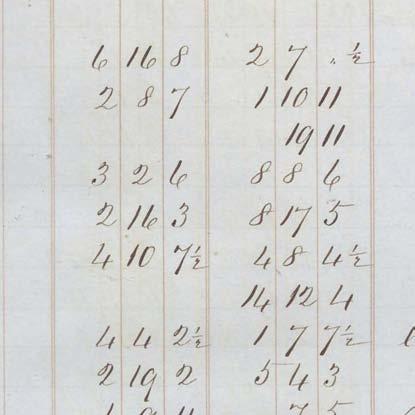 6 16 8 2 7 . ½
2 8 7 1 10 11
19 11
3 2 6 8 8 6
2 16 3 8 17 5
4 10 7½ 4 8 4½
14 12 4
4 4 2½ 1 7 7½
2 19 2 5 4 3